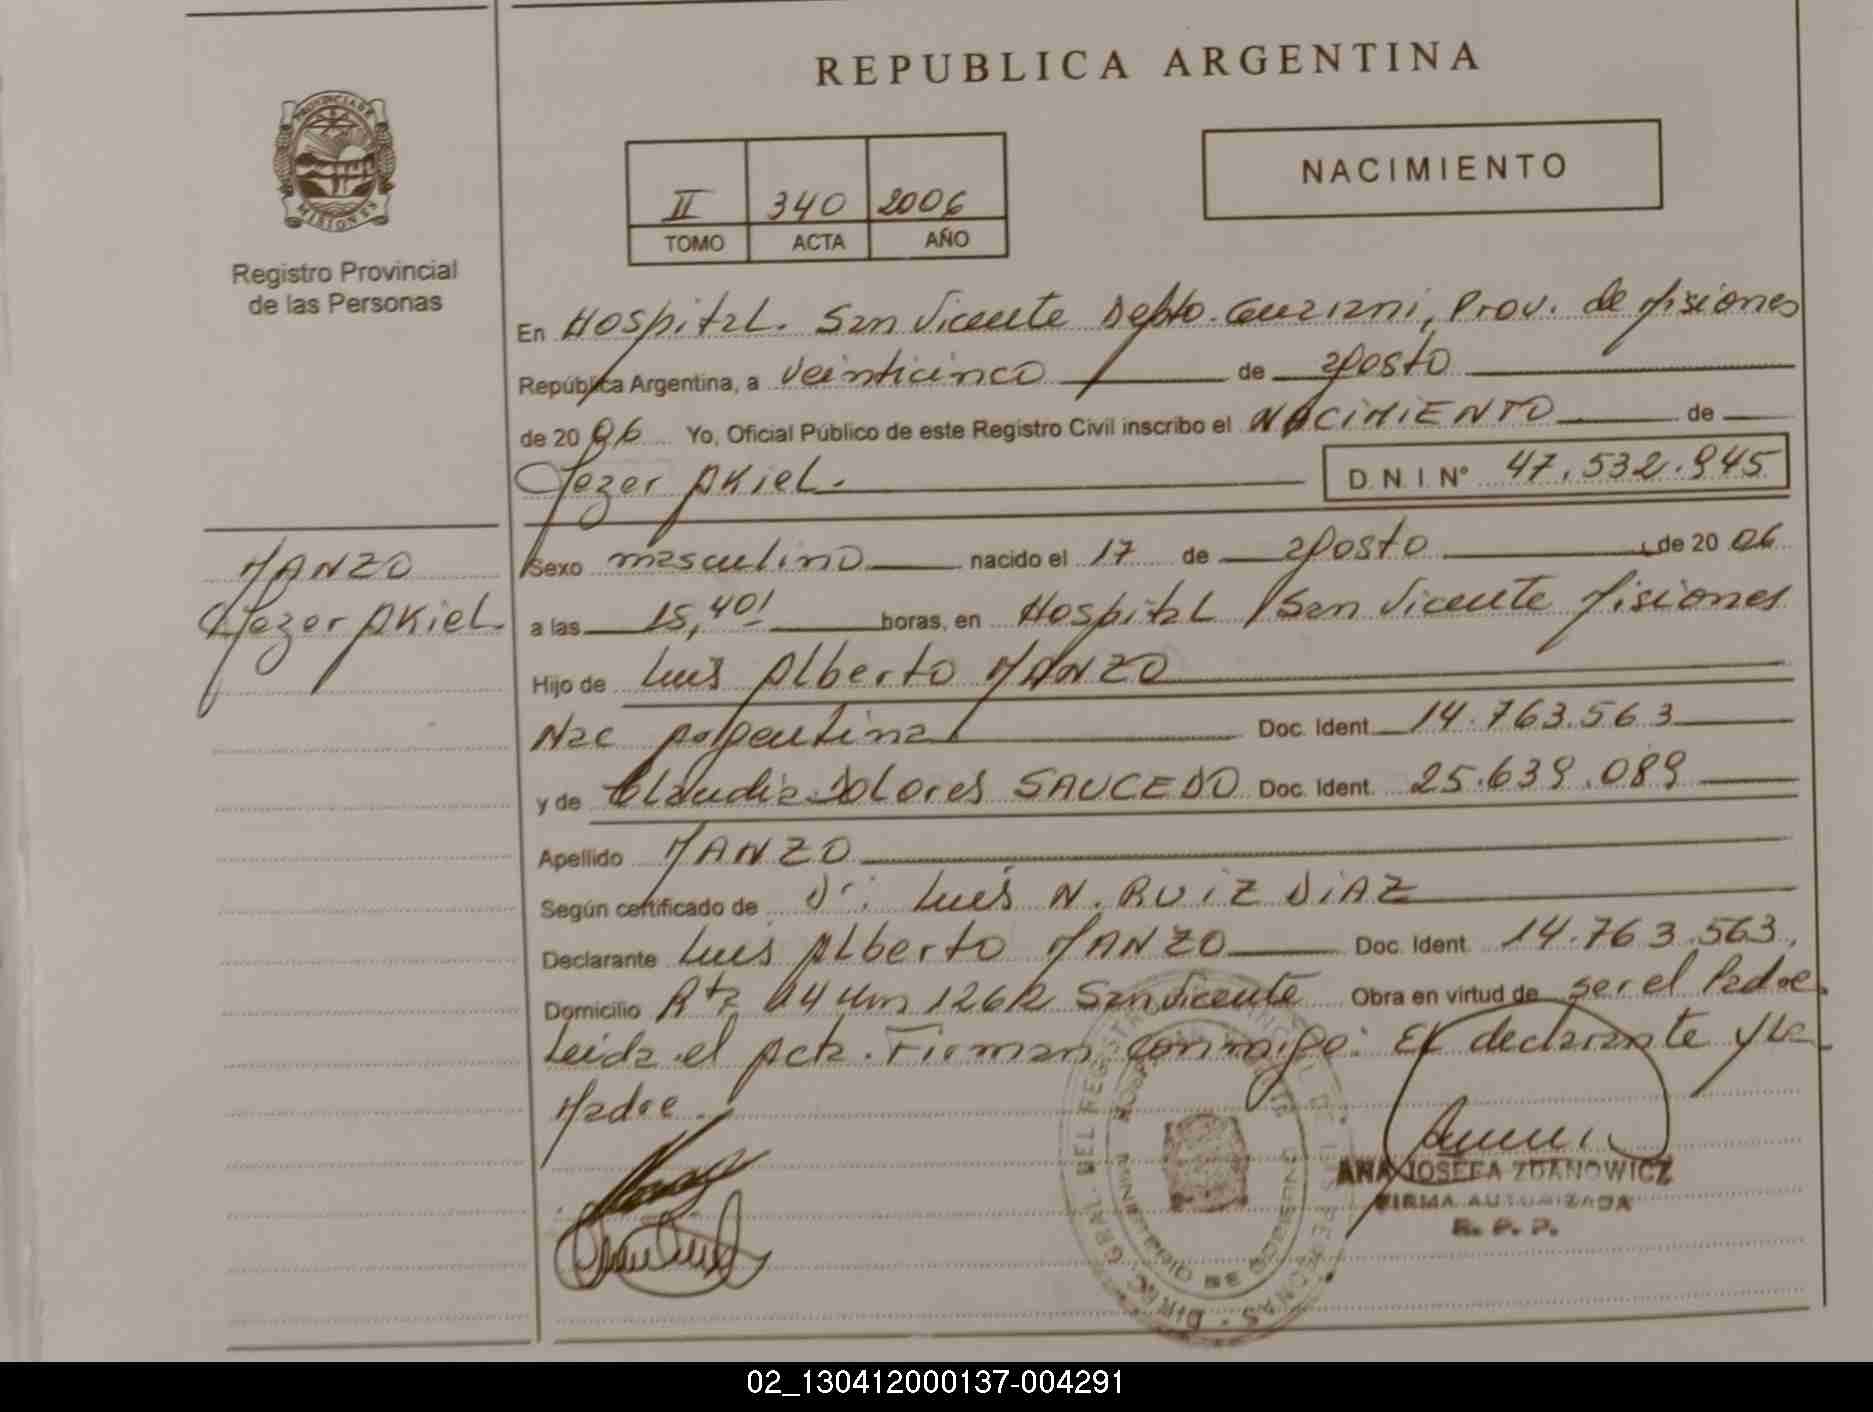 REPUBLICA ARGENTINA
PROVINCIA DE
MISIONES
Registro Provincial
de las Personas
NACIMIENTO
II 340 2006
TOMO ACTA AÑO
En Hospital. San Vicente Depto. Guarani, Prov. de Misiones
República Argentina, a veinticinco de agosto
de 2006 Yo, Oficial Público de este Registro Civil inscribo el NACIMIENTO de
Jezer AKiel. D.N.I. Nº 47.532.945
MANZO
Jezer AKiel
Sexo masculino nacido el 17 de agosto de 2006
a las 15,40 horas, en Hospital San Vicente Misiones
Hijo de Luis Alberto MANZO
Nac Argentina Doc. Ident. 14.763.563
y de Claudia Dolores SAUCEDO Doc. Ident. 25.639.089
Apellido MANZO
Según certificado de Dr: Luis N. RUIZ DIAZ
Declarante Luis Alberto MANZO Doc. Ident. 14.763.563,
Domicilio Rta 14 Km 1262 San Vicente Obra en virtud de ser el Padre.
Leida el acta. Firman conmigo: El declarante y La
Madre.
ANA JOSEFA ZDANOWICZ
FIRMA AUTORIZADA
R. P. P.
02_130412000137-004291